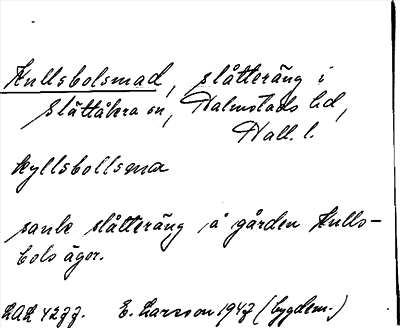 Hullsbolsmad, slåtteräng i
Slättåkra sn, Halmstads hd,
Hall. l.
Hyllsbollsma
sank slåtteräng på gården Hulls-
bols ägor.
E. Larsson 1947 (bygdem.)